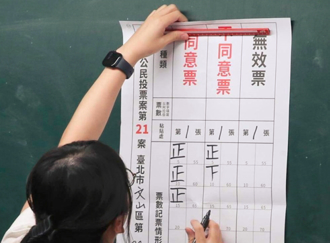 公民投票案第21案
臺北市文山區第
種類
同意票
不同意票
無效票
票數
粘貼處
第1張
第1張
第1張
票數記票情形
正
正
正
正
下